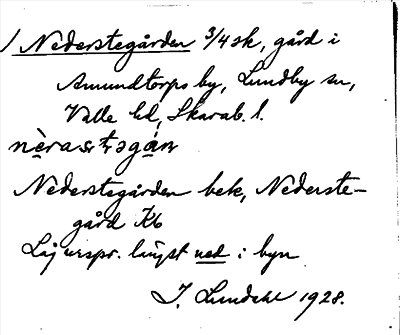 Nederstegården 3/4 sk, gård i
Amundtorps by, Lundby sn,
Valle hd, Skarab. l.
nèrastəgán
Nederstegården bek, Nederste-
gård Kb
Låg urspr. längst ned i byn
J. Lundahl 1928.